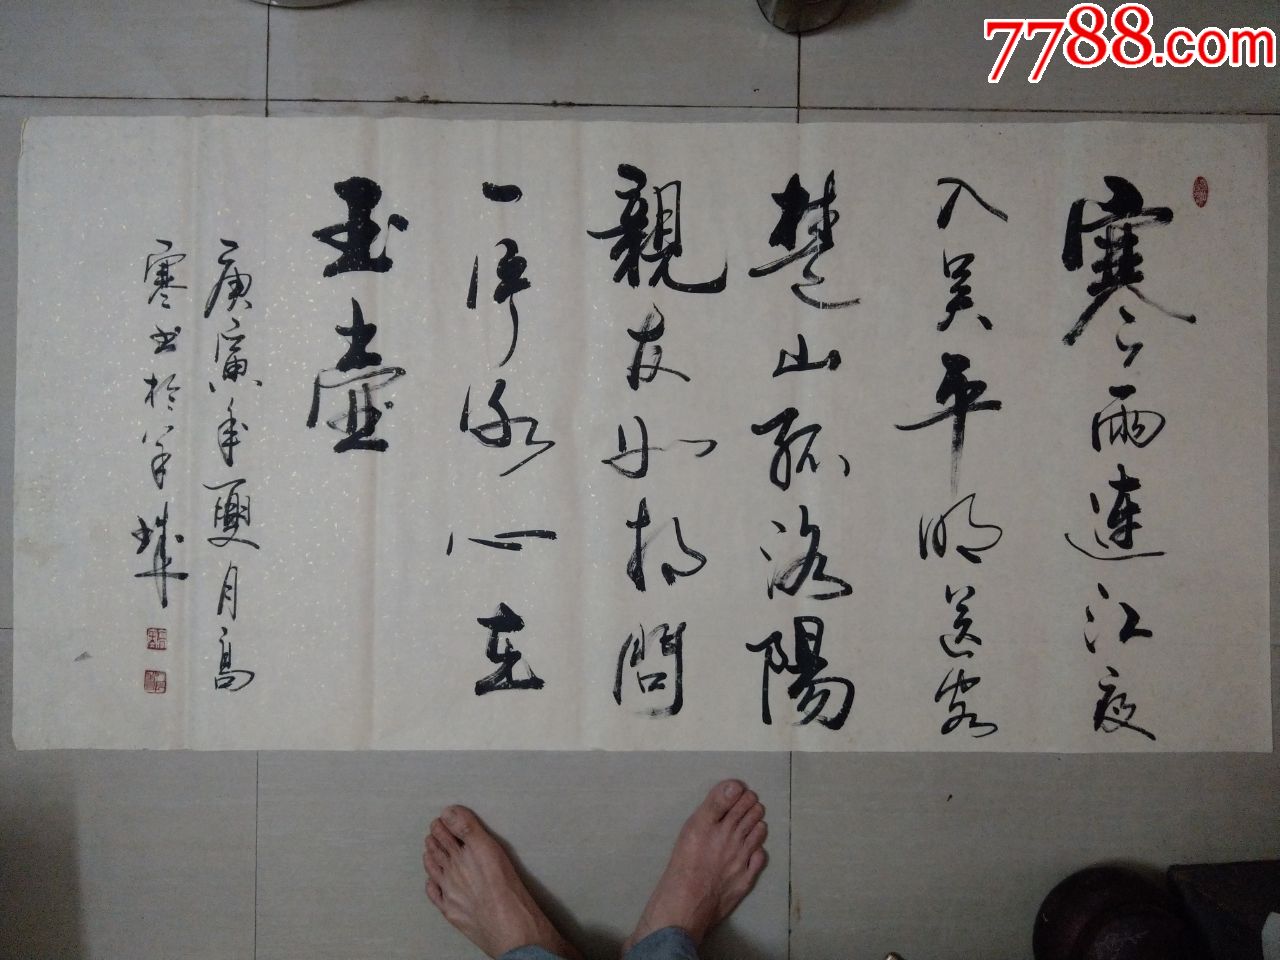 寒雨連江夜
入吴平明送客
楚山孤洛陽
親友如相問
一片冰心在
玉壺
庚寅年夏月高
寒书於羊城
7788.com